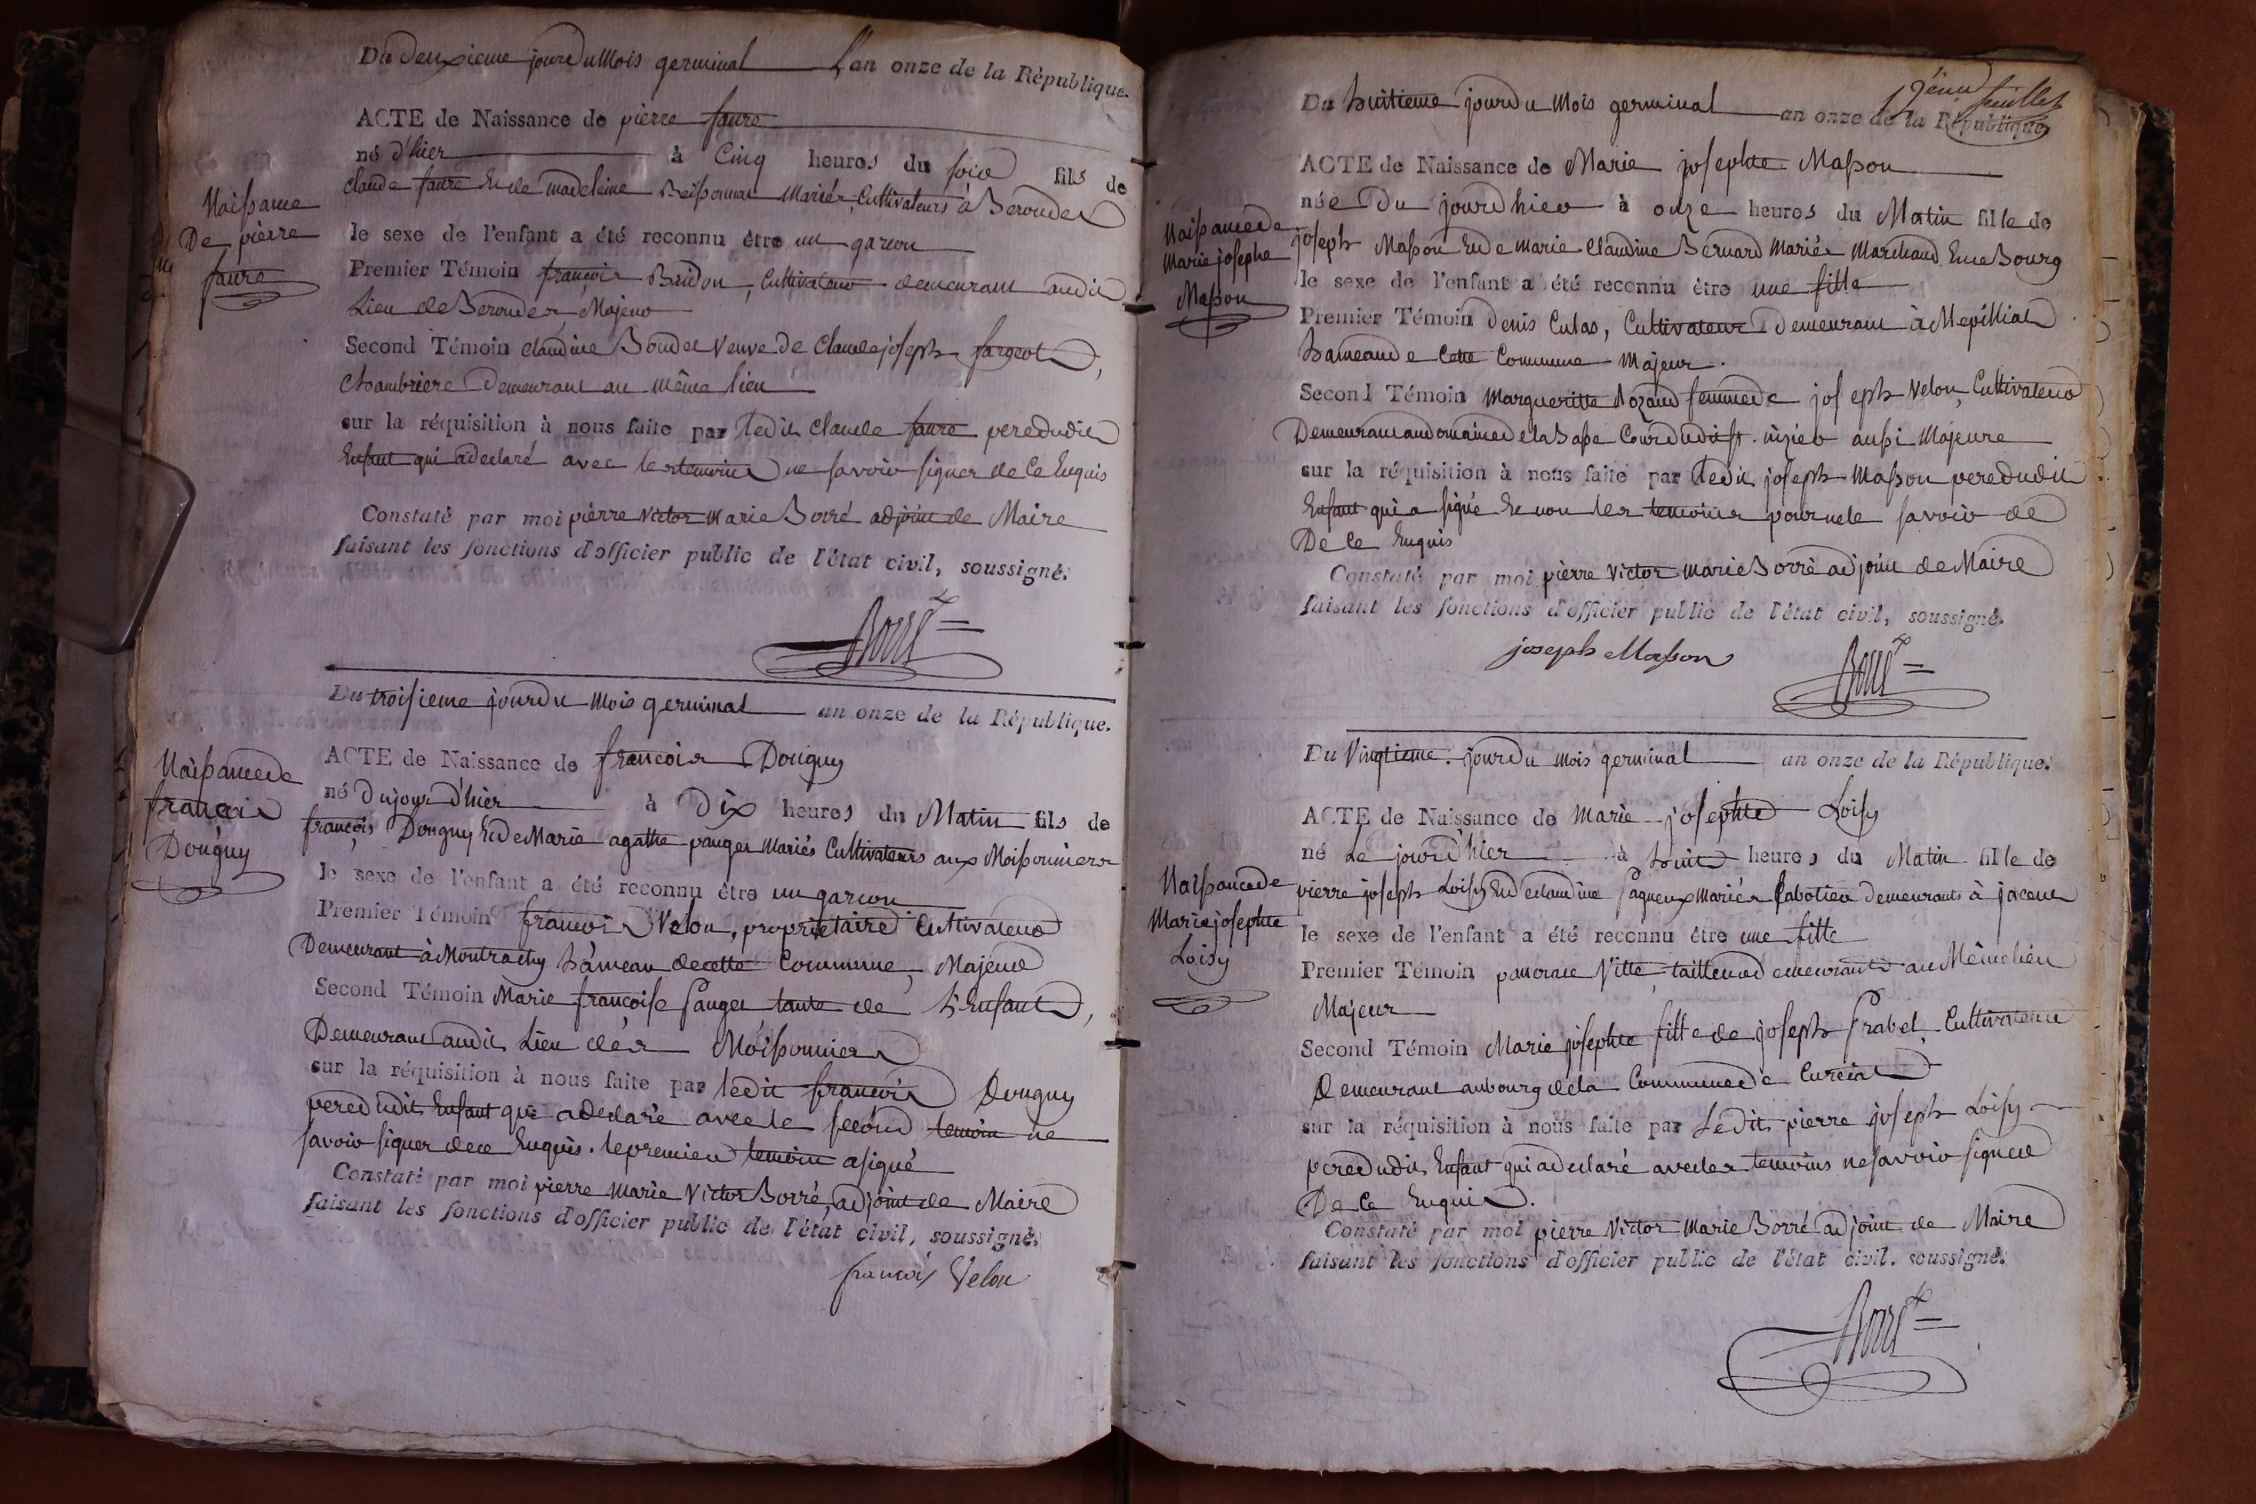 Du deuxieme jour du Mois germinal L'an onze de la République.
ACTE de Naissance de pierre faure
né d'hier à Cinq heures du soir fils de
Claude faure Et de madeleine Mariés, Cultivateurs à Beroudes
le sexe de l'enfant a été reconnu être un garçon
Naissance
De pierre
faure
Premier Témoin françois Buidon, Cultivateur demeurant audit
Lieu de Beroudes, Majeur
Second Témoin Claudine Boudet Veuve de Claude joseph fargeot,
Chambriere Demeurant au même lieu
sur la réquisition à nous faite par ledit Claude faure pere dudit
Enfant qui a declaré avec les temoins ne savoir signer de Ce Enquis
Constaté par moi pierre Victor Marie Borré adjoint de Maire
faisant les fonctions d'officier public de l'état civil, soussigné.
Borré
Du troisieme jour du Mois germinal an onze de la République.
ACTE de Naissance de françois Douguy
Naissance de
françois
Douguy
né Du jour d'hier à Dix heures du Matin fils de
françois Douguy Et de Marie agathe pauget Mariés Cultivateurs aux Moissonniers
le sexe de l'enfant a été reconnu être un garçon
Premier Témoin françois Velon, propriétaire Cultivateur
Demeurant à Montrachy hâmeau de cette Commune, Majeur
Second Témoin Marie françoise Pauget tante de L'Enfant,
Demeurant audit Lieu des Moissonniers
sur la réquisition à nous faite par ledit françois Douguy
pere dudit Enfant qui a declaré avec le second temoin ne
savoir signer de ce Enquis. le premier temoin a signé
Constaté par moi pierre Marie Victor Borré, adjoint de Maire
faisant les fonctions d'officier public de l'état civil, soussigné.
françois Velon
feuillet
Du huitieme jour du Mois germinal an onze de la République
ACTE de Naissance de Marie josephte Masson
née Du jourd'hier à onze heures du Matin fille de
Naissance de
Marie josephe
Masson
joseph Masson Et de Marie Claudine Bernard Mariés Marchand En ce Bourg
le sexe de l'enfant a été reconnu être une fille
Premier Témoin Denis Cutas, Cultivateur Demeurant à Mepilliat
hameau de Cette Commune Majeur.
Second Témoin Margueritte Rozand femme de joseph Velon, Cultivateur
Demeurant au domaine de la Basse Cour dudit st. nizier aussi Majeure
sur la réquisition à nous faite par ledit joseph Masson pere dudit
Enfant qui a signé Et non les temoins pour ne le savoir de
De Ce Enquis
Constaté par moi pierre Victor Marie Borré adjoint de Maire
faisant les fonctions d'officier public de l'état civil, soussigné.
joseph Masson Borré
Du Vingtieme jour du Mois germinal an onze de la République.
ACTE de Naissance de Marie josephte Loisy
né Le jourd'hier à huit heures du Matin fille de
Naissance de
Marie josephte
Loisy
pierre joseph Loisy Et de Claudine Pagneux Mariés Sabotier demeurants à jaceur
le sexe de l'enfant a été reconnu être une fille
Premier Témoin pancrace Vitte, tailleur demeurant au Même lieu
Majeur
Second Témoin Marie josephte fille de joseph frabet Cultivateur
Demeurant au bourg de la Commune de Curciat
sur la réquisition à nous faite par Ledit pierre joseph Loisy
pere dudit Enfant qui a declaré avec les temoins ne savoir signer
De Ce Enquis.
Constaté par moi pierre Victor Marie Borré adjoint de Maire
faisant les fonctions d'officier public de l'état civil. soussigné.
Borré